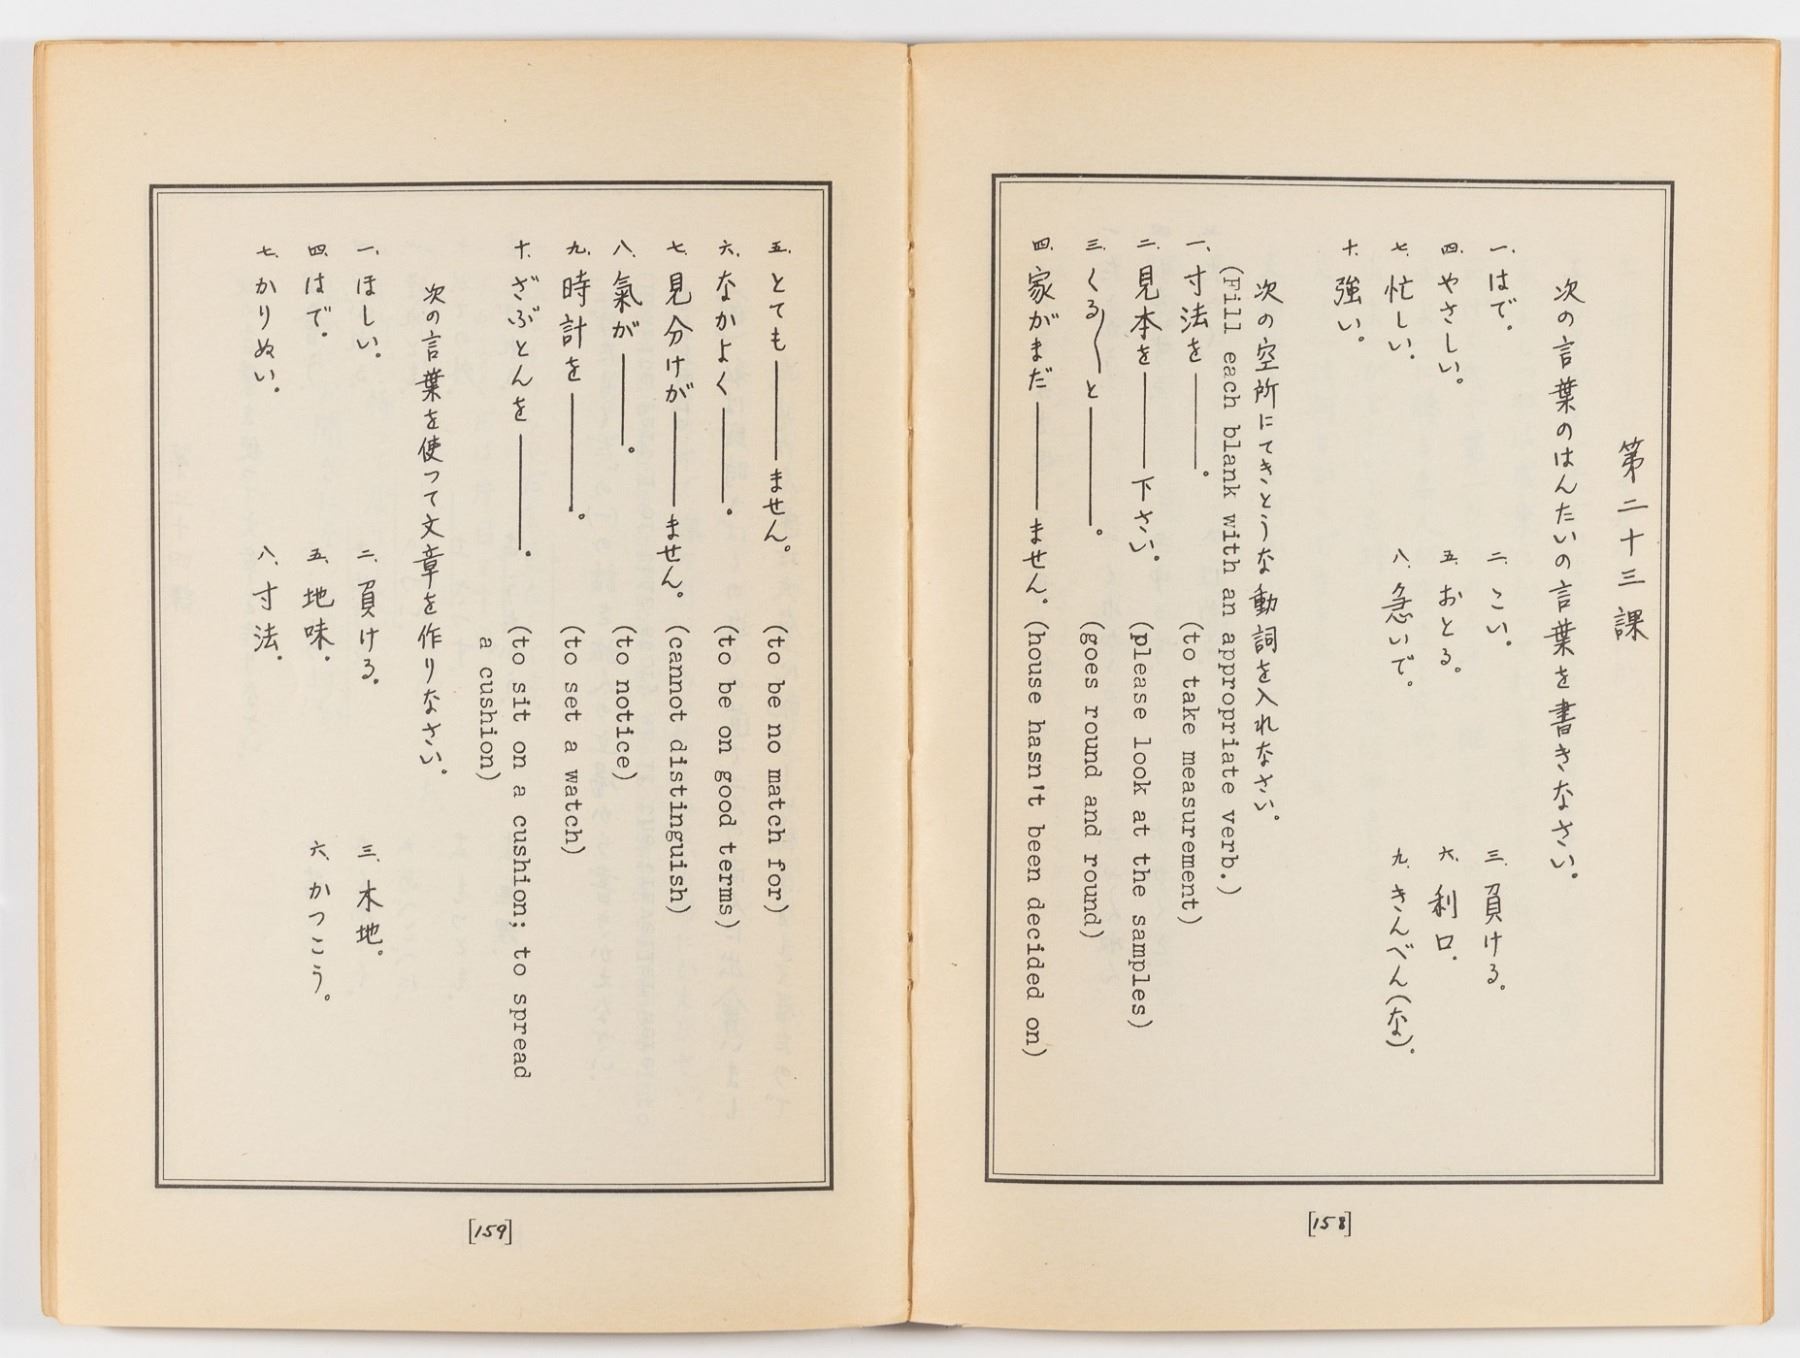 第二十三課
次の言葉のはんたいの言葉を書きなさい。
一、はで。 二、こい。 三、負ける。
四、やさしい。 五、おとる。 六、利口。
七、忙しい。 八、急いで。 九、きんべん(な)。
十、強い。
次の空所にてきとうな動詞を入れなさい。
(Fill each blank with an appropriate verb.)
一、寸法を――。 (to take measurement)
二、見本を――下さい。 (please look at the samples)
三、くる〱と――。 (goes round and round)
四、家がまだ――ません。 (house hasn't been decided on)
[158]
五、とても――ません。 (to be no match for)
六、なかよく――。 (to be on good terms)
七、見分けが――ません。 (cannot distinguish)
八、氣が――。 (to notice)
九、時計を――。 (to set a watch)
十、ざぶとんを――。 (to sit on a cushion; to spread
a cushion)
次の言葉を使つて文章を作りなさい。
一、ほしい。 二、負ける。 三、木地。
四、はで。 五、地味。 六、かつこう。
七、かりぬい。 八、寸法。
[159]